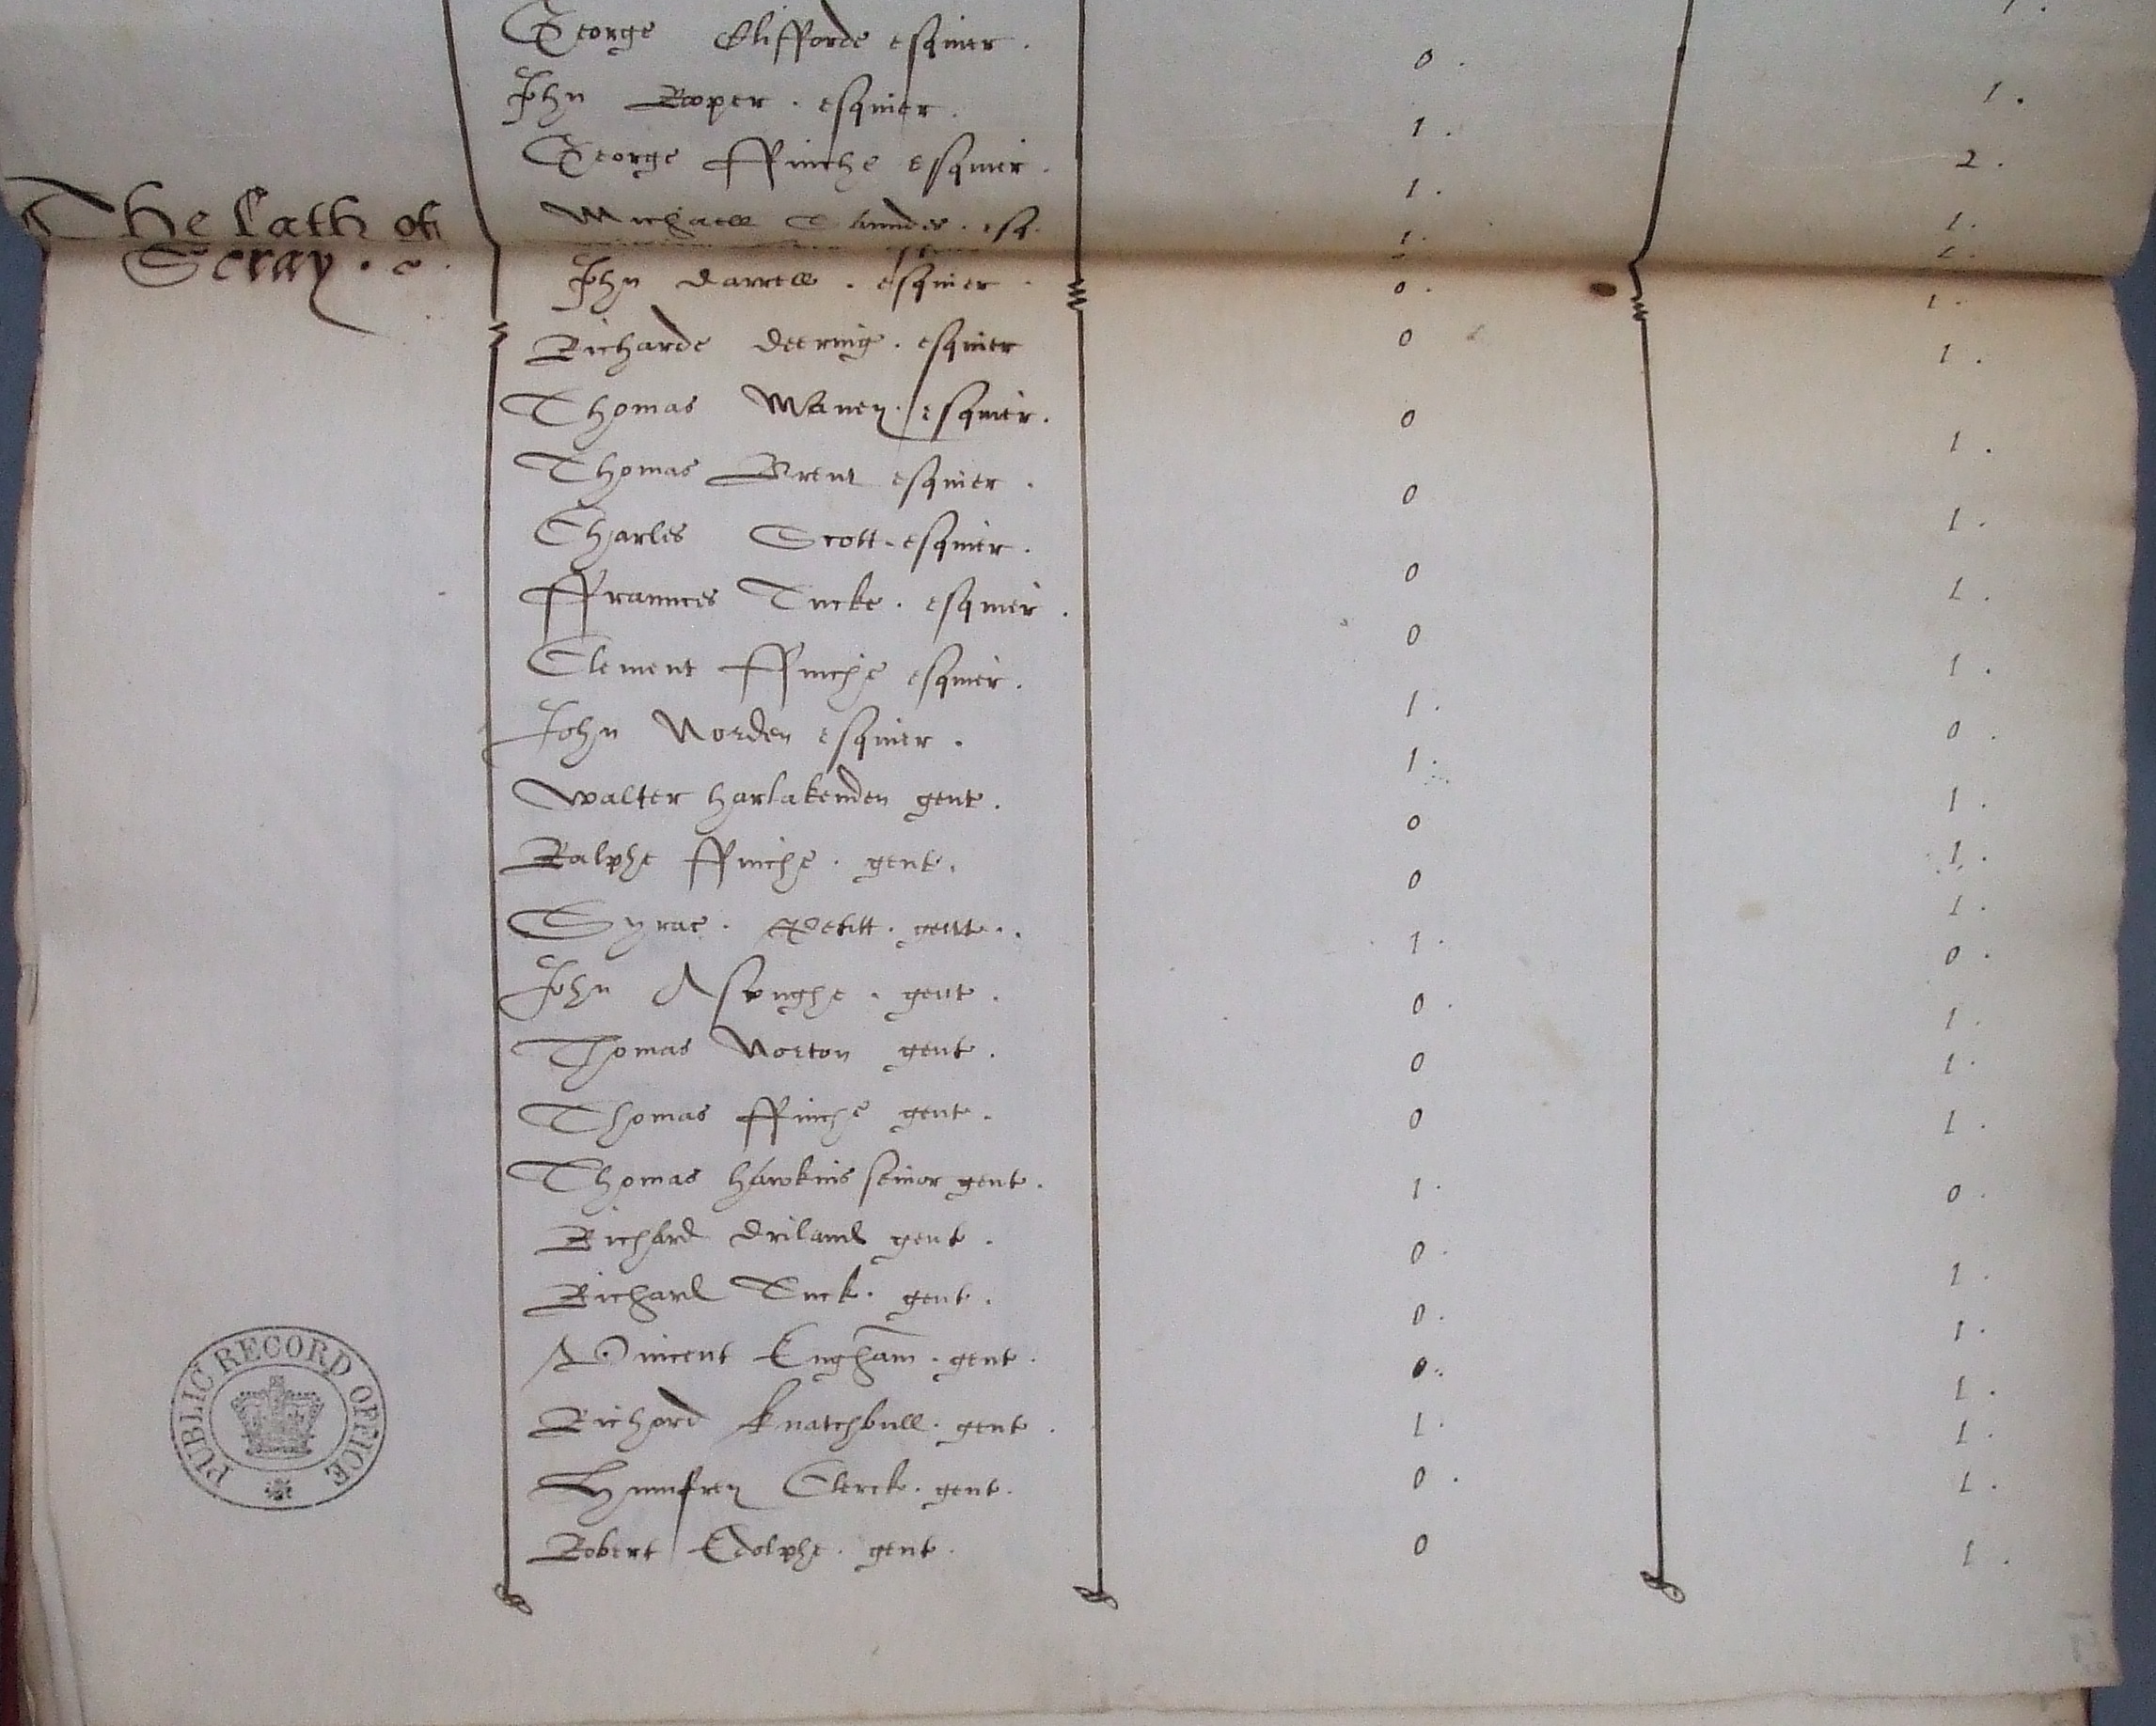 George Clifforde esquier . 0 . 1 .
John Roper . esquier . 1 . 2 .
George ffinche esquier . 1 . 1 .
The Lath of Scray .
Michaell . esq. 1 .
John darrell . esquier . 0 . 1 .
Richarde deering . esquier 0 1 .
Thomas Waney . esquier . 0 1 .
Thomas Brent esquier . 0 1 .
Charles Scott . esquier . 0 1 .
ffraunces Tucke . esquier . 0 1 .
Clement ffinche esquier . 1 . 0 .
John Norden esquier . 1 . 1 .
Walter harlakenden gent . 0 1 .
Ralphe ffinche . gent . 0 1 .
Cyrac . Petitt . gent . . 1 . 0 .
John Asonghe . gent . 0 . 1 .
Thomas Norton gent . 0 1 .
Thomas ffinche gent . 0 1 .
Thomas hawkins senior gent . 1 . 0 .
Richard driland gent . 0 . 1 .
Richard Tuck . gent . 0 . 1 .
Vincent Engham . gent . 0 . 1 .
Richard Knatchbull . gent . 1 . 1 .
Humfrey Clerck . gent . 0 . 1 .
Robert Edolphe . gent . 0 1 .
PUBLIC RECORD OFFICE